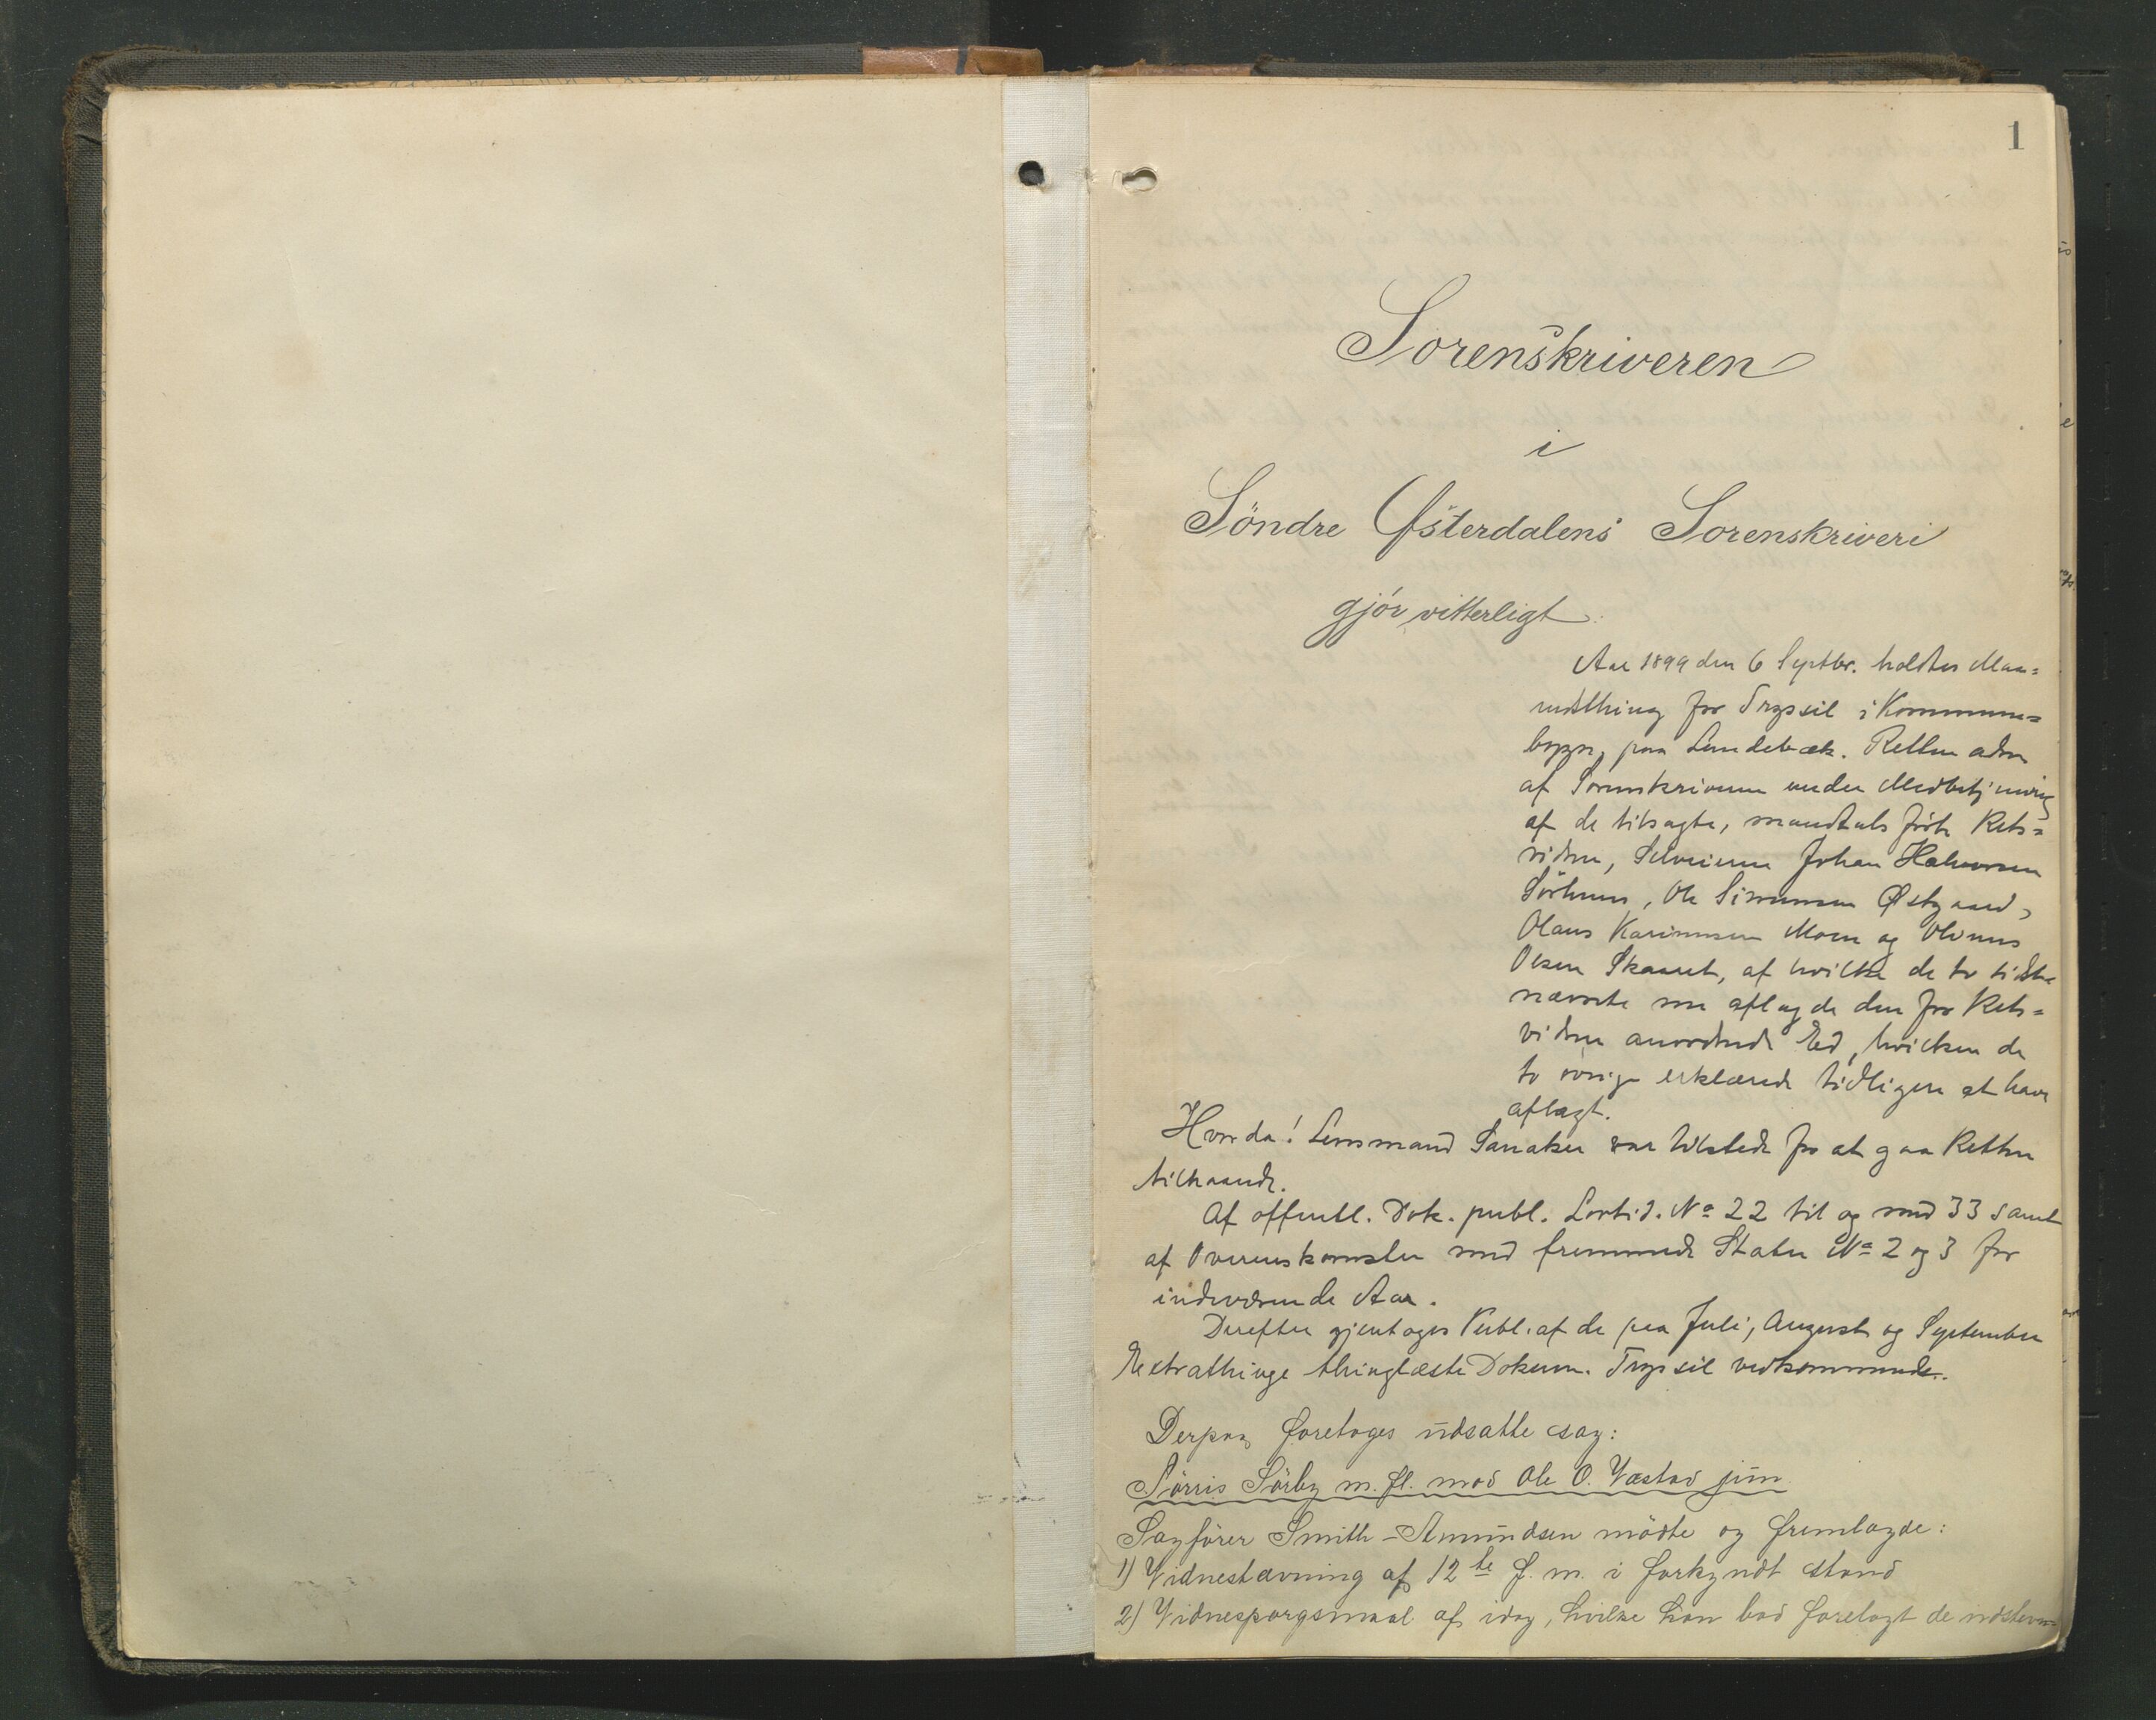 1
Sorenskriveren
i
Söndre Østerdalens Sorenskriveri
gjör vitterligt:
Aar 1899 den 6 Septbr. holdtes Maa=
nedsthing for Trysil i Kommune=
bygn. paa Lundebæk. Retten adm
af Sorenskriveren under Medbetjening
af de tilsagte, mandtalsförte Rets=
vidner, Selveierne Johan Halvorsen
Sörhuus, Ole Simensen Østgaard,
Olaus Karinusen Moen og
Olsen Skaaret, af hvilke de to sidst
nævnte nu aflagde den for Rets=
vidner anordnede Ed, hvilken de
to övrige erklærede tidligere at have
aflagt.
Hvorda! Lensmand Sanaker var tilstede for at gaa Retten
tilhaande.
Af offentl. Dok. publ. Lovtid. No 22 til og med 33 samt
af Overenskomster med fremmede Stater No 2 og 3 for
indeværende Aar.
Derefter gjentoges Publ. af de paa Juli, August og September
Extrathinge thinglæste Dokum. Trysil vedkommende.
Derpaa foretoges udsatte sag:
Sörris Sörby m. fl. mod Ole O. Væstad jun
Sagförer Smith-Amundsen mödte og fremlagde:
1) Vidnestævning af 12te f. m. i forkyndt stand
2) Vidnesporgsmaal af idag, hvilke han bad forelagt de indstevn=